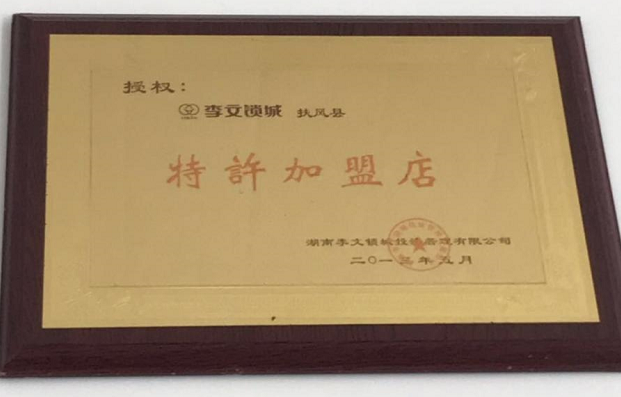 授权：
李文锁城 扶风县
特許加盟店
湖南李文锁城投资管理有限公司
二〇一三年五月